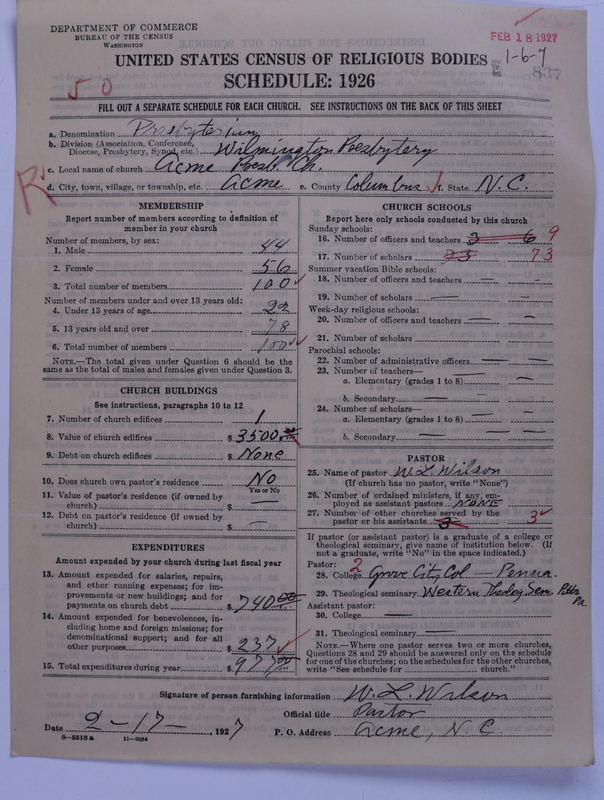 DEPARTMENT OF COMMERCE
BUREAU OF THE CENSUS
WASHINGTON
FEB 18 1927
1-6-7
837
UNITED STATES CENSUS OF RELIGIOUS BODIES
SCHEDULE: 1926
50
FILL OUT A SEPARATE SCHEDULE FOR EACH CHURCH. SEE INSTRUCTIONS ON THE BACK OF THIS SHEET
a. Denomination Presbyterian
b. Division (Association, Conference, Diocese, Presbytery, Synod, etc.) Wilmington Presbytery
c. Local name of church Acme Presb. Ch.
R
d. City, town, village, or township, etc. Acme e. County Columbus f. State. N. C.
MEMBERSHIP
Report number of members according to definition of
member in your church
Number of members, by sex:
1. Male 44
2. Female 56
3. Total number of members 100
Number of members under and over 13 years old:
4. Under 13 years of age 22
5. 13 years old and over 78
6. Total number of members 100
NOTE.—The total given under Question 6 should be the
same as the total of males and females given under Question 3.
CHURCH BUILDINGS
See instructions, paragraphs 10 to 12
7. Number of church edifices 1
8. Value of church edifices $ 3500
9. Debt on church edifices $ None
10. Does church own pastor's residence No
Yes or No
11. Value of pastor's residence (if owned by
church) $ —
12. Debt on pastor's residence (if owned by
church) $ —
EXPENDITURES
Amount expended by your church during last fiscal year
13. Amount expended for salaries, repairs,
and other running expenses; for im-
provements or new buildings; and for
payments on church debt $ 740.00
14. Amount expended for benevolences, in-
cluding home and foreign missions; for
denominational support; and for all
other purposes $ 237
15. Total expenditures during year $ 977.00
CHURCH SCHOOLS
Report here only schools conducted by this church
Sunday schools:
16. Number of officers and teachers 3 6 9
17. Number of scholars 73 73
Summer vacation Bible schools:
18. Number of officers and teachers — —
19. Number of scholars — —
Week-day religious schools:
20. Number of officers and teachers — —
21. Number of scholars — —
Parochial schools:
22. Number of administrative officers — —
23. Number of teachers—
a. Elementary (grades 1 to 8) — —
b. Secondary — —
24. Number of scholars—
a. Elementary (grades 1 to 8) — —
b. Secondary — —
PASTOR
25. Name of pastor W. L. Wilson
(If church has no pastor, write "None")
26. Number of ordained ministers, if any, em-
ployed as assistant pastors NONE
27. Number of other churches served by the
pastor or his assistants 3 3
If pastor (or assistant pastor) is a graduate of a college or
theological seminary, give name of institution below. (If
not a graduate, write "No" in the space indicated.)
Pastor: 2
28. College Grove City Col — Penna.
29. Theological seminary Western Theolog. Sem. Pitts Pa.
Assistant pastor:
30. College —
31. Theological seminary —
NOTE.—Where one pastor serves two or more churches,
Questions 28 and 29 should be answered only on the schedule
for one of the churches; on the schedules for the other churches,
write "See schedule for church."
Signature of person furnishing information W. L. Wilson
Official title Pastor
Date 2-17-, 1927 P. O. Address Acme, N. C.
8-5518 a 11-9054